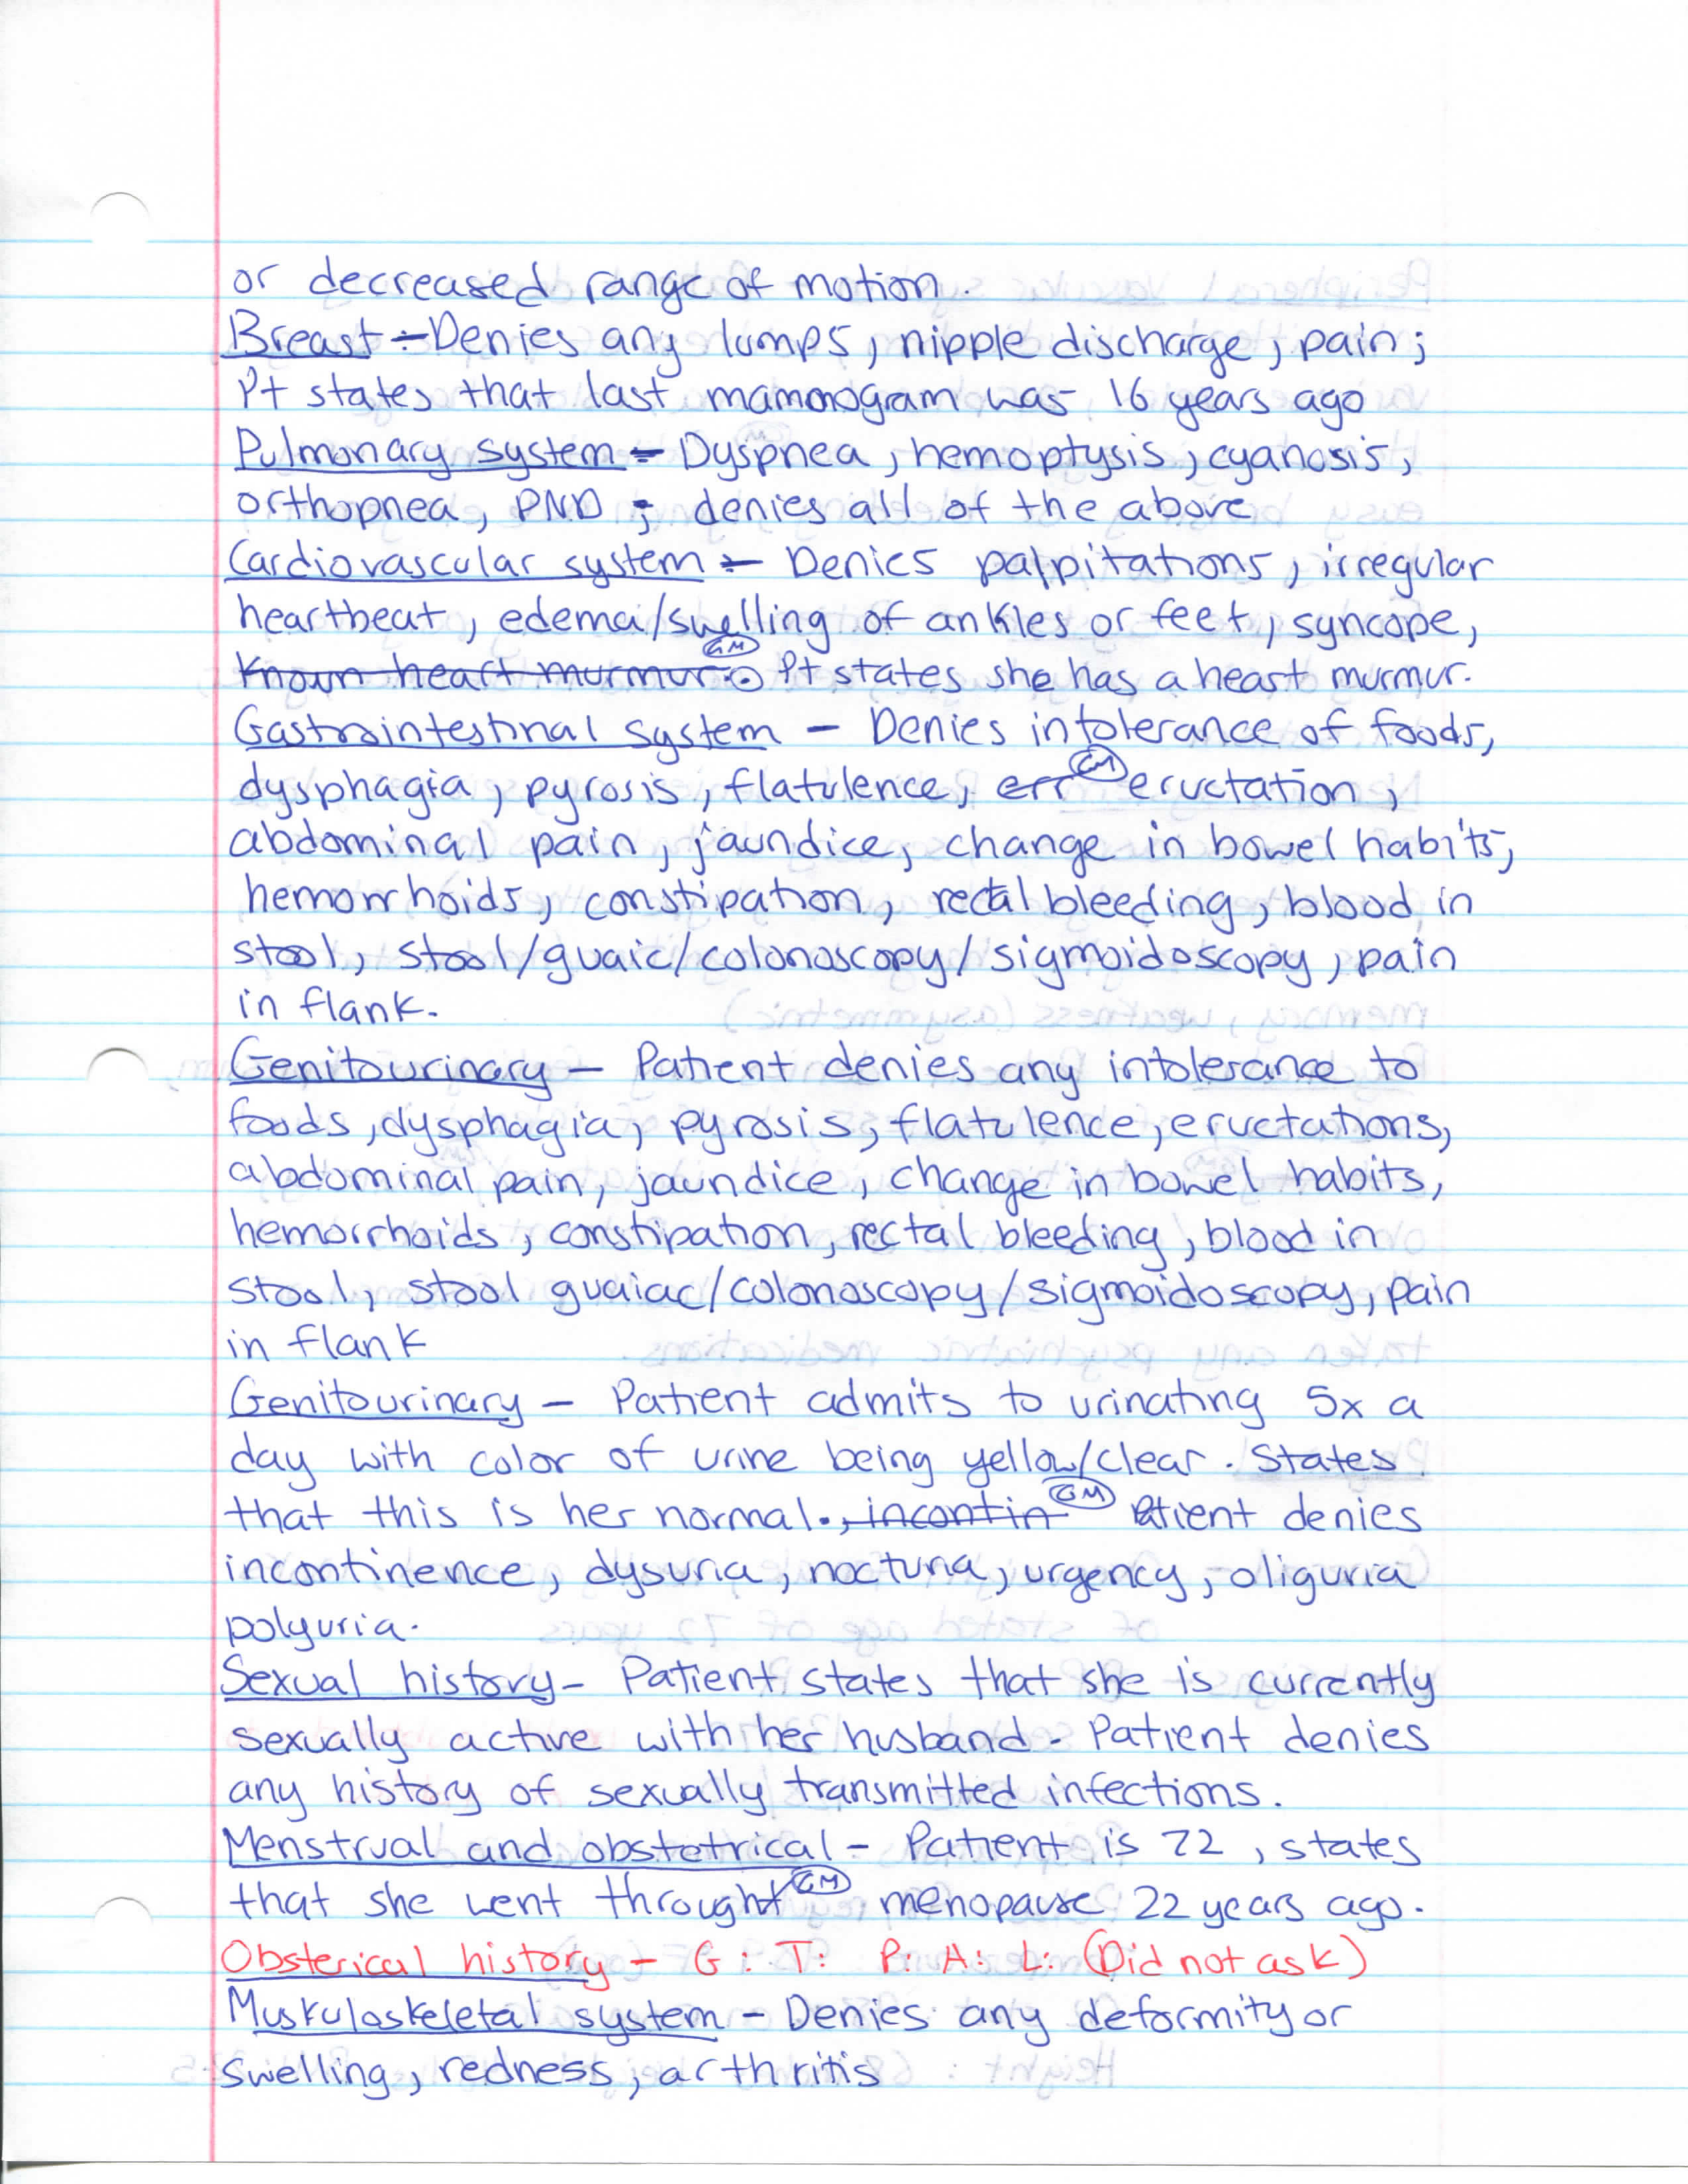 or decreased range of motion.
Breast - Denies any lumps, nipple discharge, pain;
Pt states that last mammogram was 16 years ago
Pulmonary system - Dyspnea, hemoptysis, cyanosis,
orthopnea, PND; denies all of the above
Cardiovascular system - Denies palpitations, irregular
heartbeat, edema/swelling of ankles or feet, syncope,
Known heart murmur. GM Pt states she has a heart murmur.
Gastrointestinal system - Denies intolerance of foods,
dysphagia, pyrosis, flatulence, err GM eructation,
abdominal pain, jaundice, change in bowel habits,
hemorrhoids, constipation, rectal bleeding, blood in
stool, stool/guaic/colonoscopy/sigmoidoscopy, pain
in flank.
Genitourinary - Patient denies any intolerance to
foods, dysphagia, pyrosis, flatulence, eructations,
abdominal pain, jaundice, change in bowel habits,
hemorrhoids, constipation, rectal bleeding, blood in
stool, stool guaiac/colonoscopy/sigmoidoscopy, pain
in flank
Genitourinary - Patient admits to urinating 5x a
day with color of urine being yellow/clear. States
that this is her normal., incontin GM Patient denies
incontinence, dysuria, nocturia, urgency, oliguria
polyuria.
Sexual history - Patient states that she is currently
sexually active with her husband. Patient denies
any history of sexually transmitted infections.
Menstrual and obstetrical - Patient is 72, states
that she went throught GM menopause 22 years ago.
Obsterical history - G: T: P: A: L: (Did not ask)
Muskuloskeletal system - Denies any deformity or
swelling, redness, arthritis